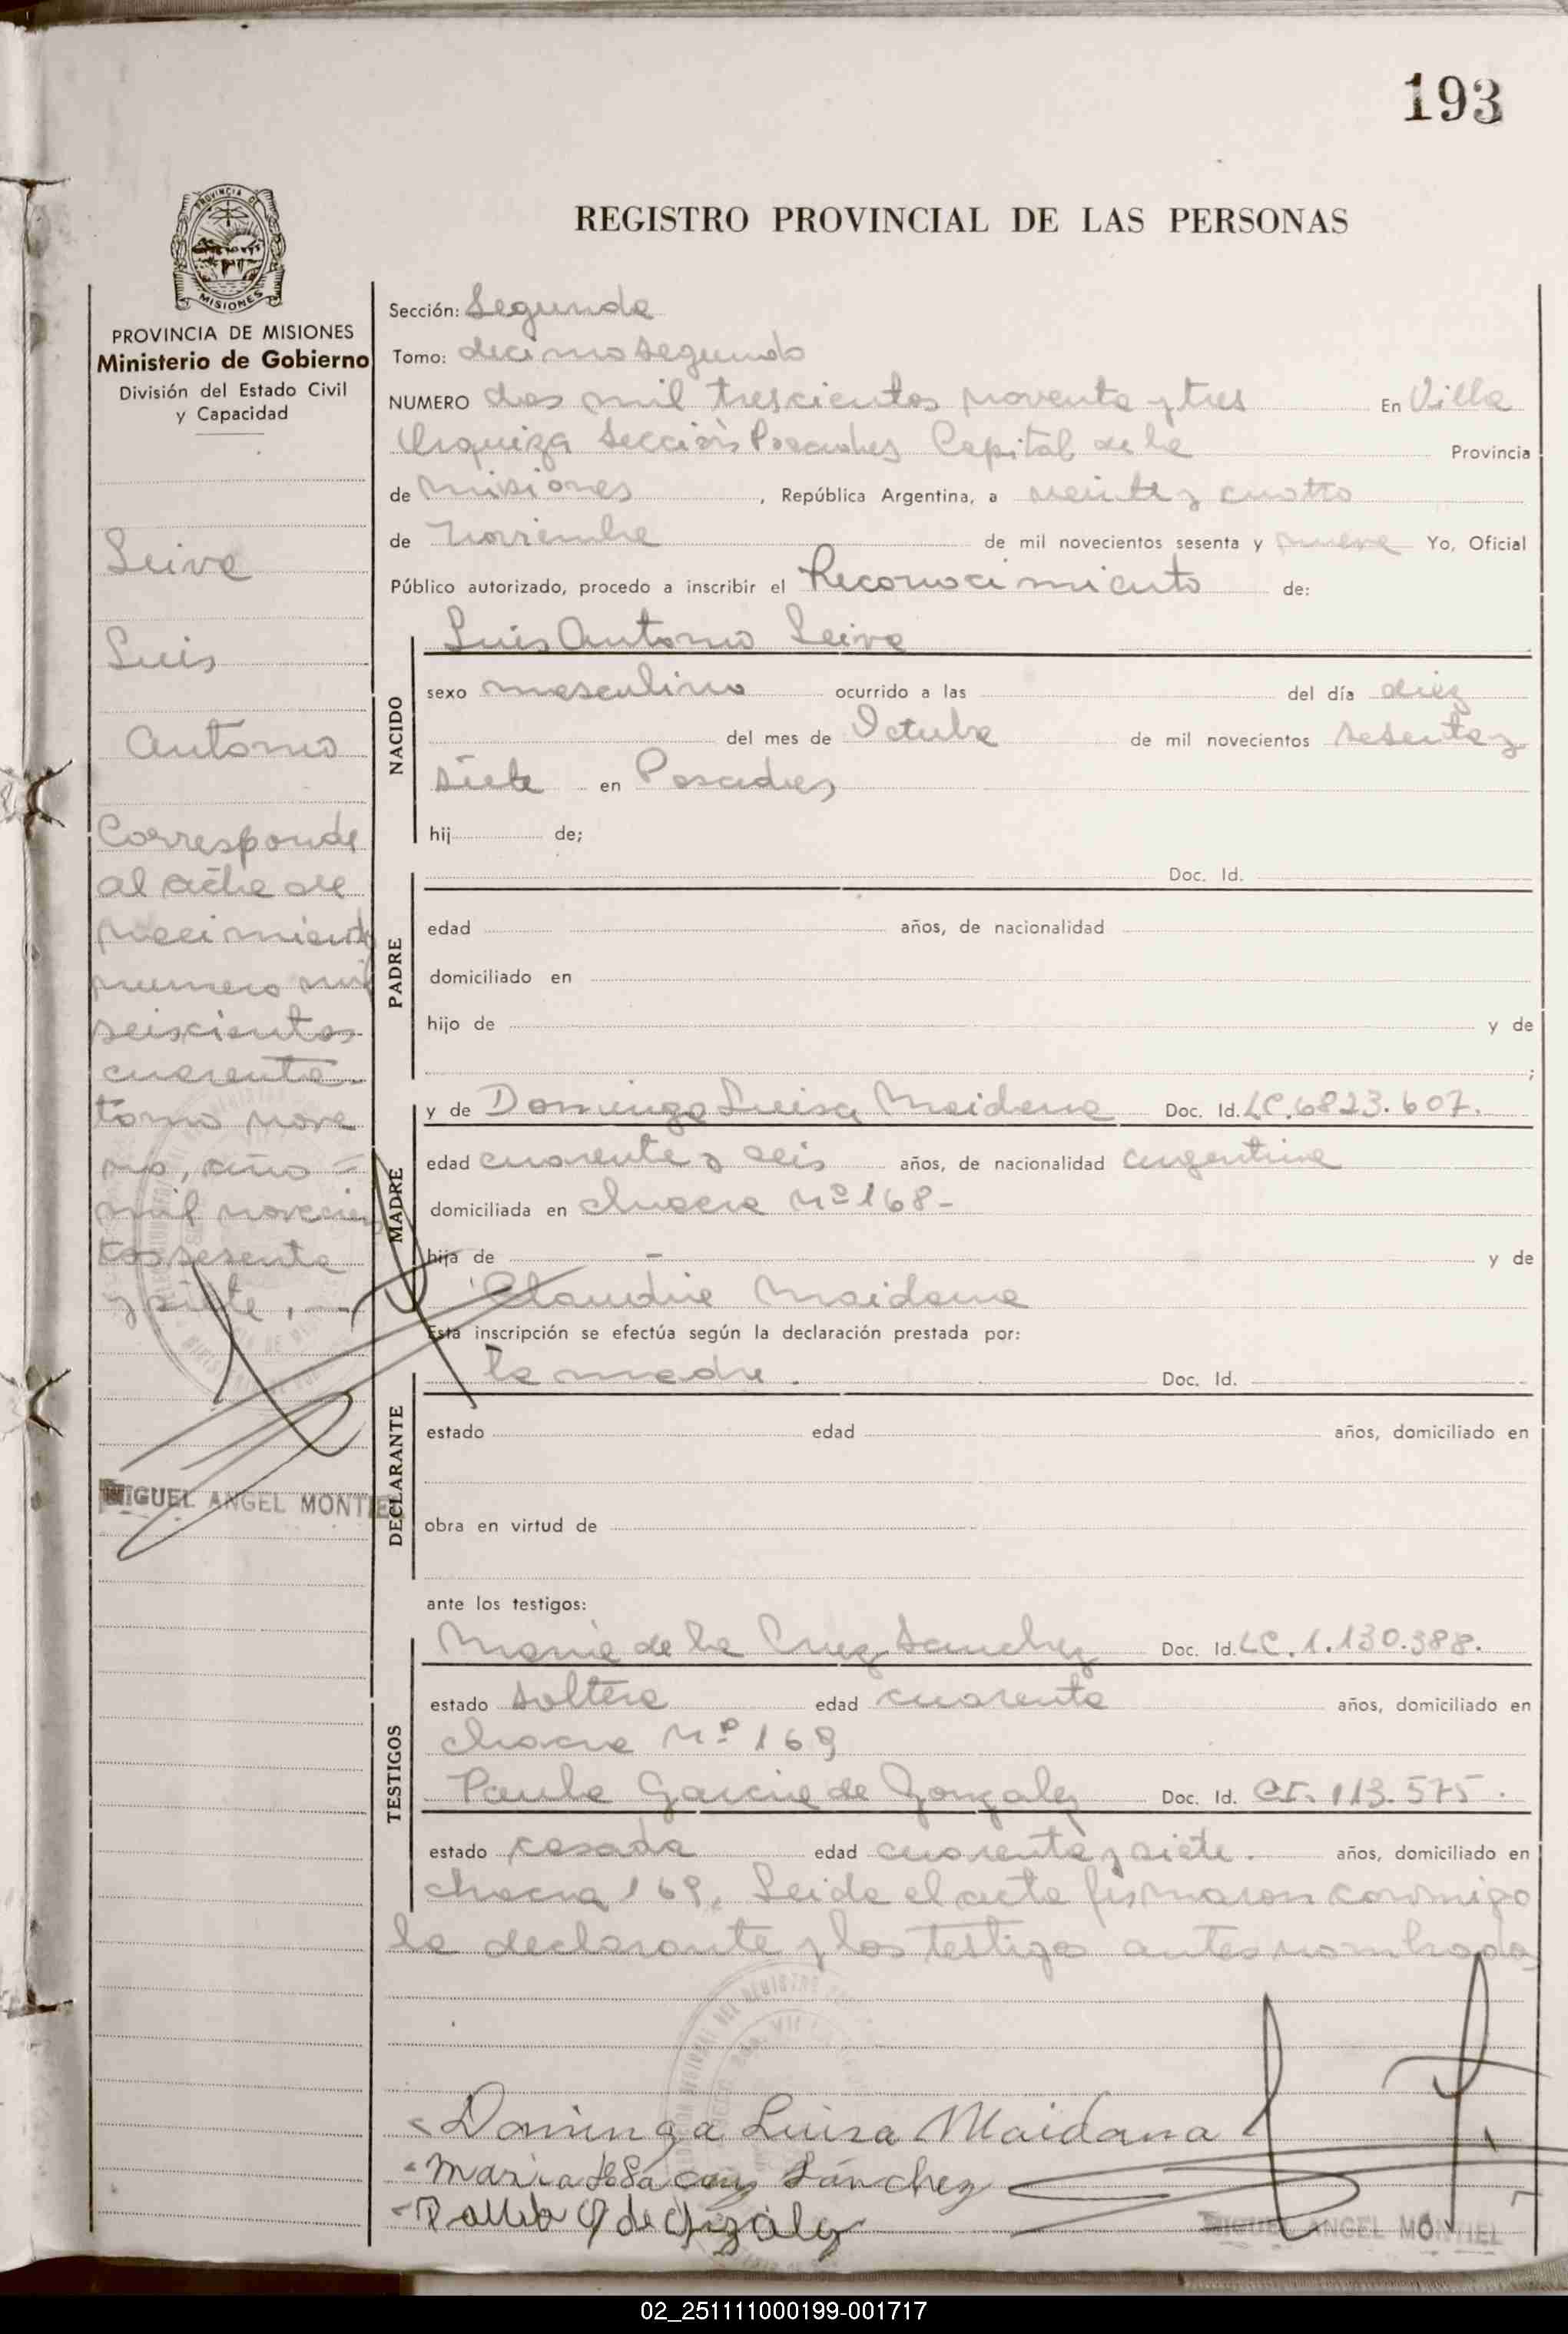 193
PROVINCIA DE
MISIONES
PROVINCIA DE MISIONES
Ministerio de Gobierno
División del Estado Civil
y Capacidad
Leiva
Luis
Antonio
Corresponde
al acta de
nacimiento
numero mil
seiscientos
cuarenta-
tomo nove
no, año =
mil novecien
tos sesenta
y siete,.—
MIGUEL ANGEL MONTIEL
REGISTRO PROVINCIAL DE LAS PERSONAS
Sección: Segunda
Tomo: decimo segundo
NUMERO dos mil trescientos noventa y tres En Villa
Urquiza Sección Posadas Capital de la Provincia
de Misiones, República Argentina, a veinte y cuatro
de Noviembre de mil novecientos sesenta y nueve Yo, Oficial
Público autorizado, procedo a inscribir el Reconocimiento de:
NACIDO
Luis Antonio Leiva
sexo masculino ocurrido a las del día diez
del mes de Octubre de mil novecientos sesenta y
siete en Posadas
hij de;
PADRE
Doc. Id.
edad años, de nacionalidad
domiciliado en
hijo de y de
;
MADRE
y de Dominga Luisa Maidana Doc. Id. LC.6823.607.
edad cuarenta y seis años, de nacionalidad argentina
domiciliada en chacra Nº 168-
hija de — y de
Claudia Maidana
Esta inscripción se efectúa según la declaración prestada por:
DECLARANTE
la madre. Doc. Id.
estado edad años, domiciliado en
obra en virtud de
ante los testigos:
TESTIGOS
Maria de la Cruz Sanchez Doc. Id. LC.1.130.388.
estado soltera edad cuarenta años, domiciliado en
chacra Nº 169
Paula Garcia de Gonzalez Doc. Id. CI. 113.575.
estado casada edad cuarenta y siete. años, domiciliado en
chacra 169. Leida el acta firmaron conmigo
la declarante y los testigo antes nombrados
Dominga Luisa Maidana
Maria de la Cruz Sánchez
MIGUEL ANGEL MONTIEL
02_251111000199-001717